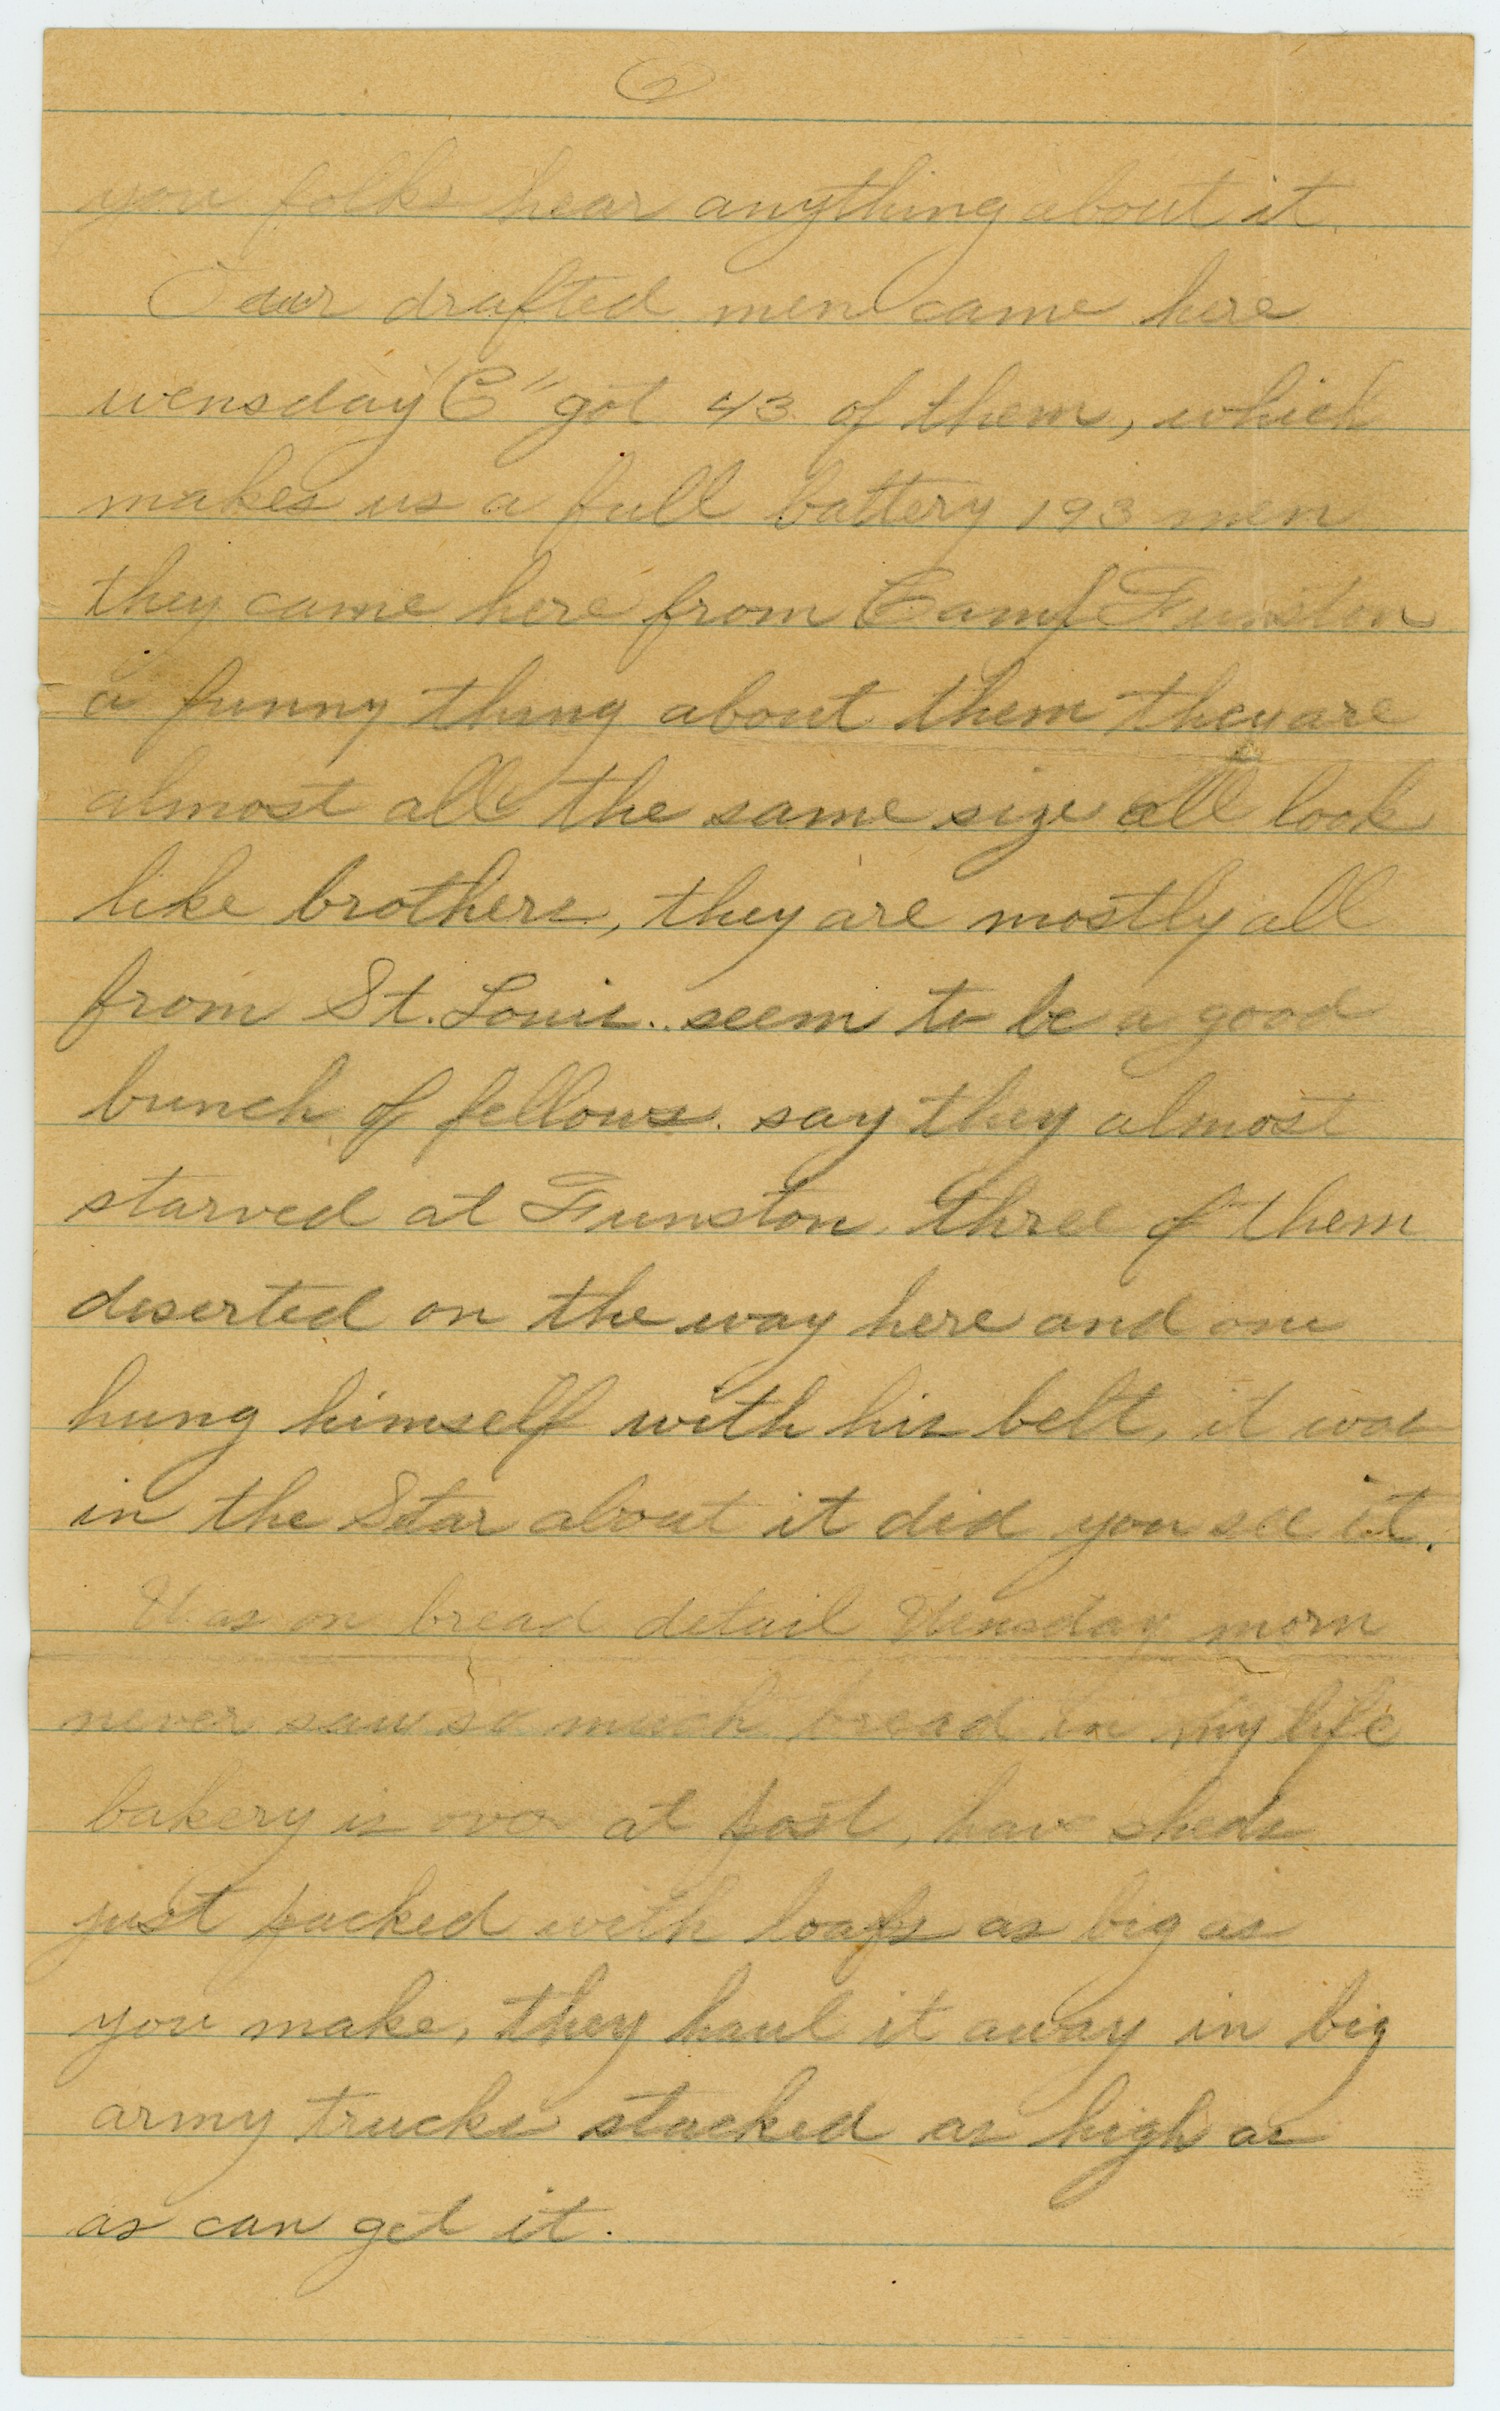 you folks hear anything about it.
Our drafted men came here
wensday "C" got 43 of them, which
makes us a full battery 193 men
they came here from Camp Funston
a funny thing about them they are
almost all the same size all look
like brothers, they are mostly all
from St. Louis. seem to be a good
bunch of fellows. say they almost
starved at Funston. three of them
deserted on the way here and one
hung himself with his belt, it was
in the Star about it did you see it.
Was on bread detail Wensday morn
never saw so much bread in my life
bakery is over at post, have sheds
just packed with loafs as big as
you make, they haul it away in big
army trucks stacked as high as
as can get it.